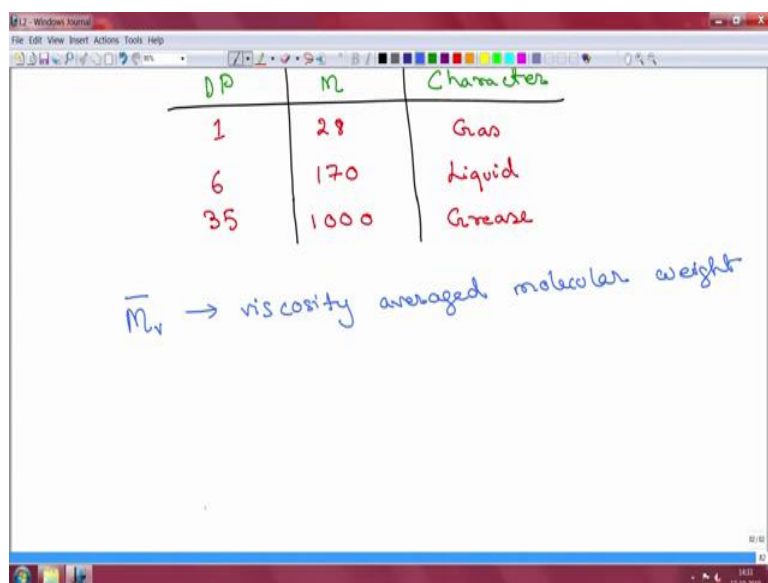 L2 - Windows Journal
File Edit View Insert Actions Tools Help
DP M Character
1 28 Gas
6 170 Liquid
35 1000 Grease
M̅v → viscosity averaged molecular weight
14:31